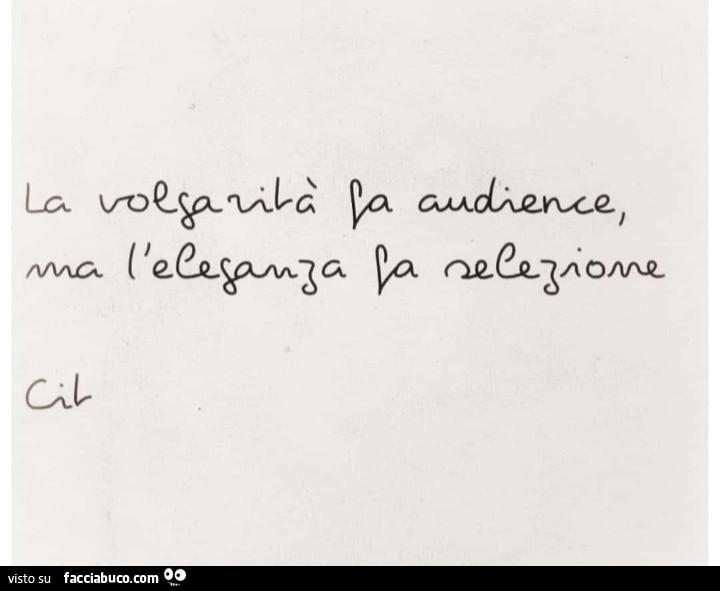 La volgarità fa audience,
ma l'eleganza fa selezione
Cit
visto su facciabuco.com